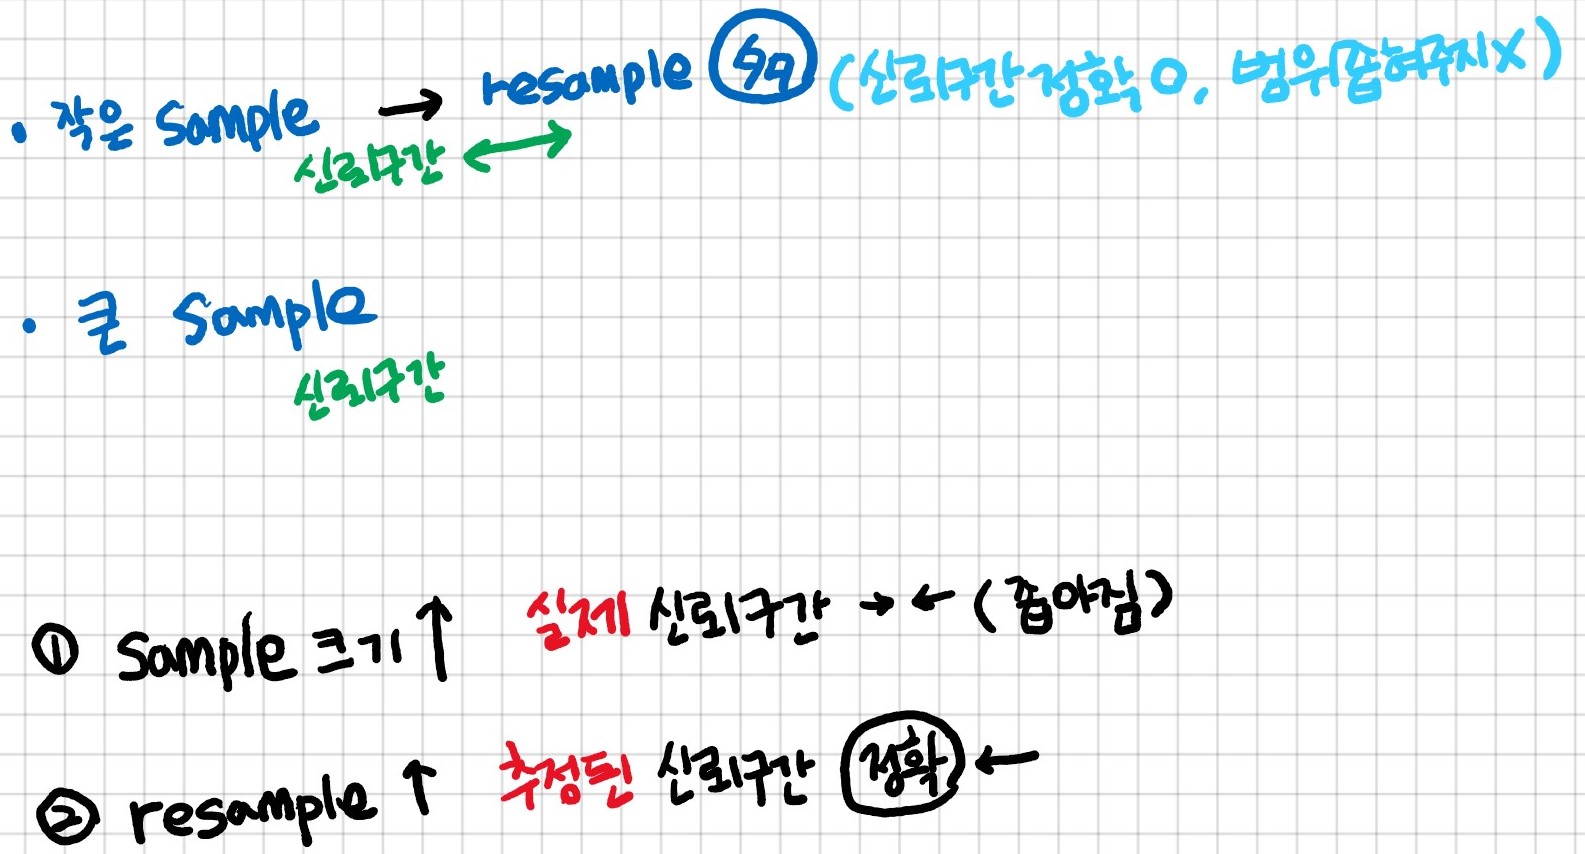 · 작은 sample → resample 多多 (신뢰구간 정확 O, 범위 좁혀주지 X)
신뢰구간 ↔
· 큰 sample
신뢰구간
① sample 크기 ↑ 실제 신뢰구간 →← (좁아짐)
② resample ↑ 추정된 신뢰구간 정확 ←